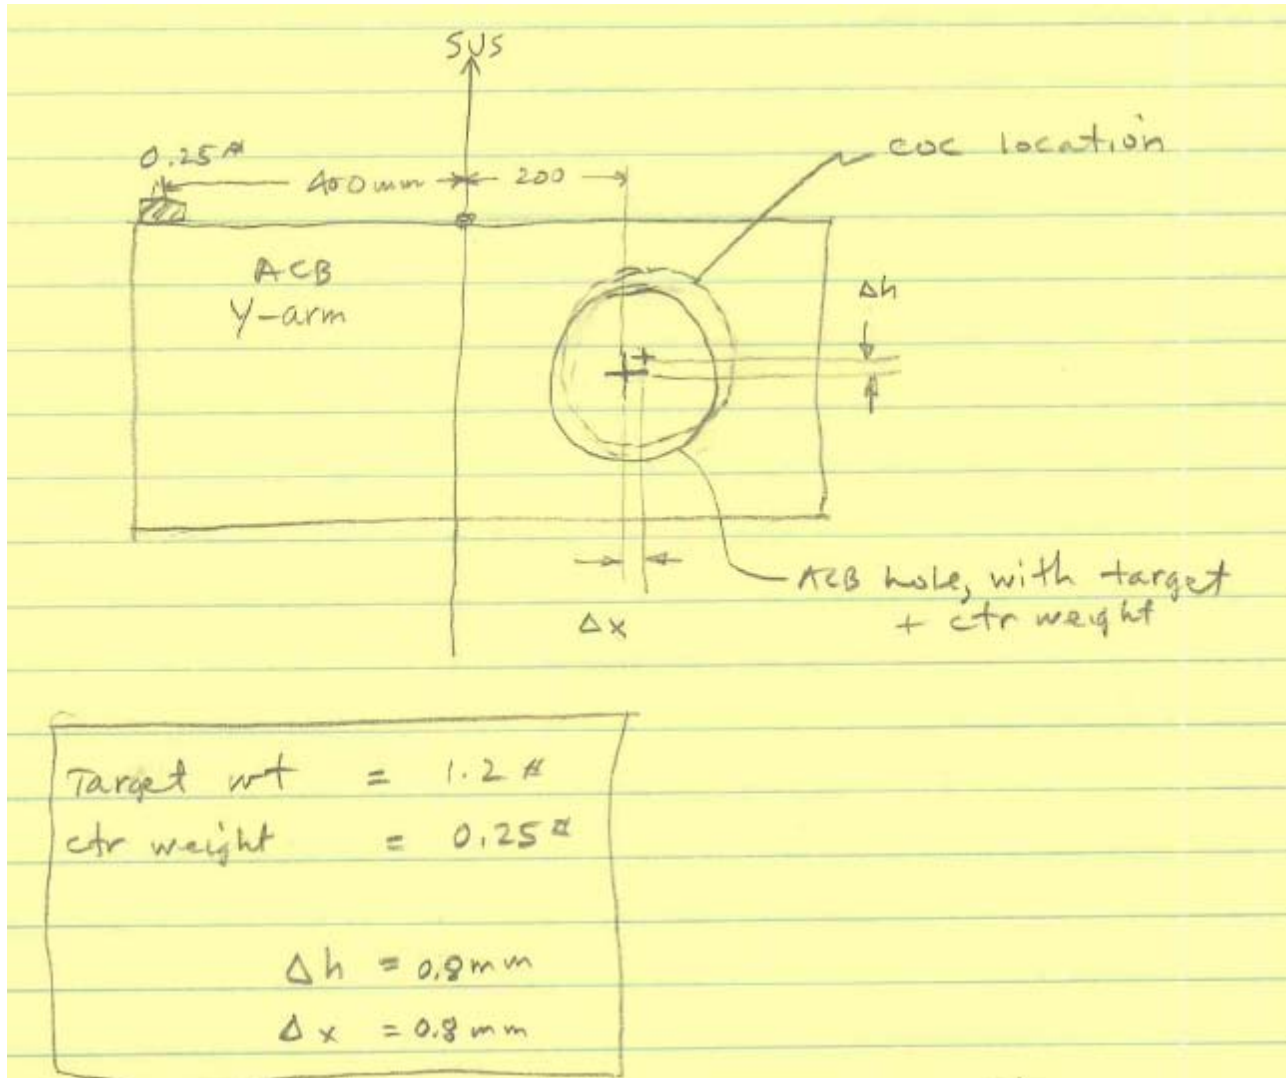 SUS
0.25 #
400mm
200
COC location
ACB
Y-arm
Δh
ACB hole, with target
+ ctr weight
Δx
Target wt = 1.2 #
ctr weight = 0.25 #
Δh = 0.8mm
Δx = 0.8mm